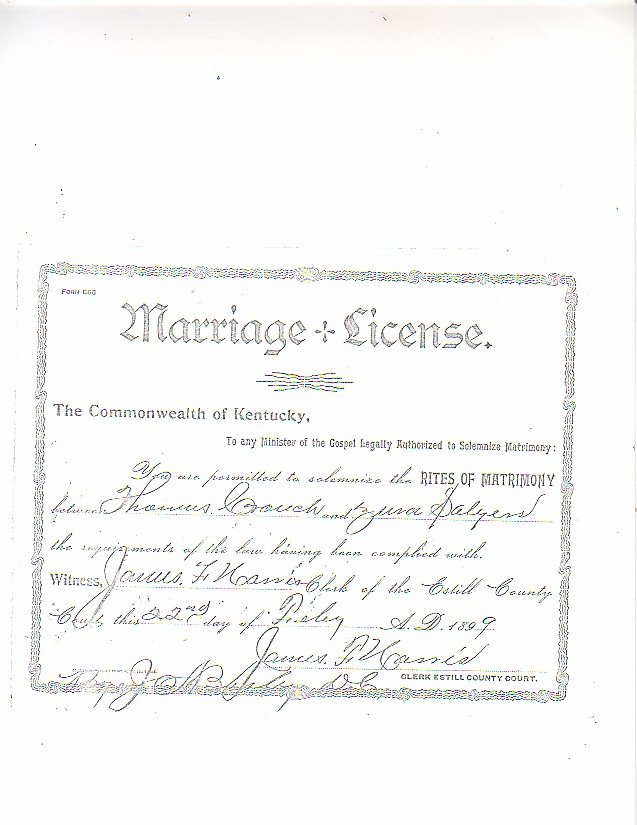 FORM
Marriage License.
The Commonwealth of Kentucky,
To any Minister of the Gospel Legally Authorized to Solemnize Matrimony:
You are permitted to solemnize the RITES OF MATRIMONY
between Thomas Couch and Salyers
the requirements of the law having been complied with.
Witness, James. F. Harris Clerk of the Estill County
Court, this 22nd day of Feby A. D. 1899
James. F. Harris
By D C
CLERK ESTILL COUNTY COURT.